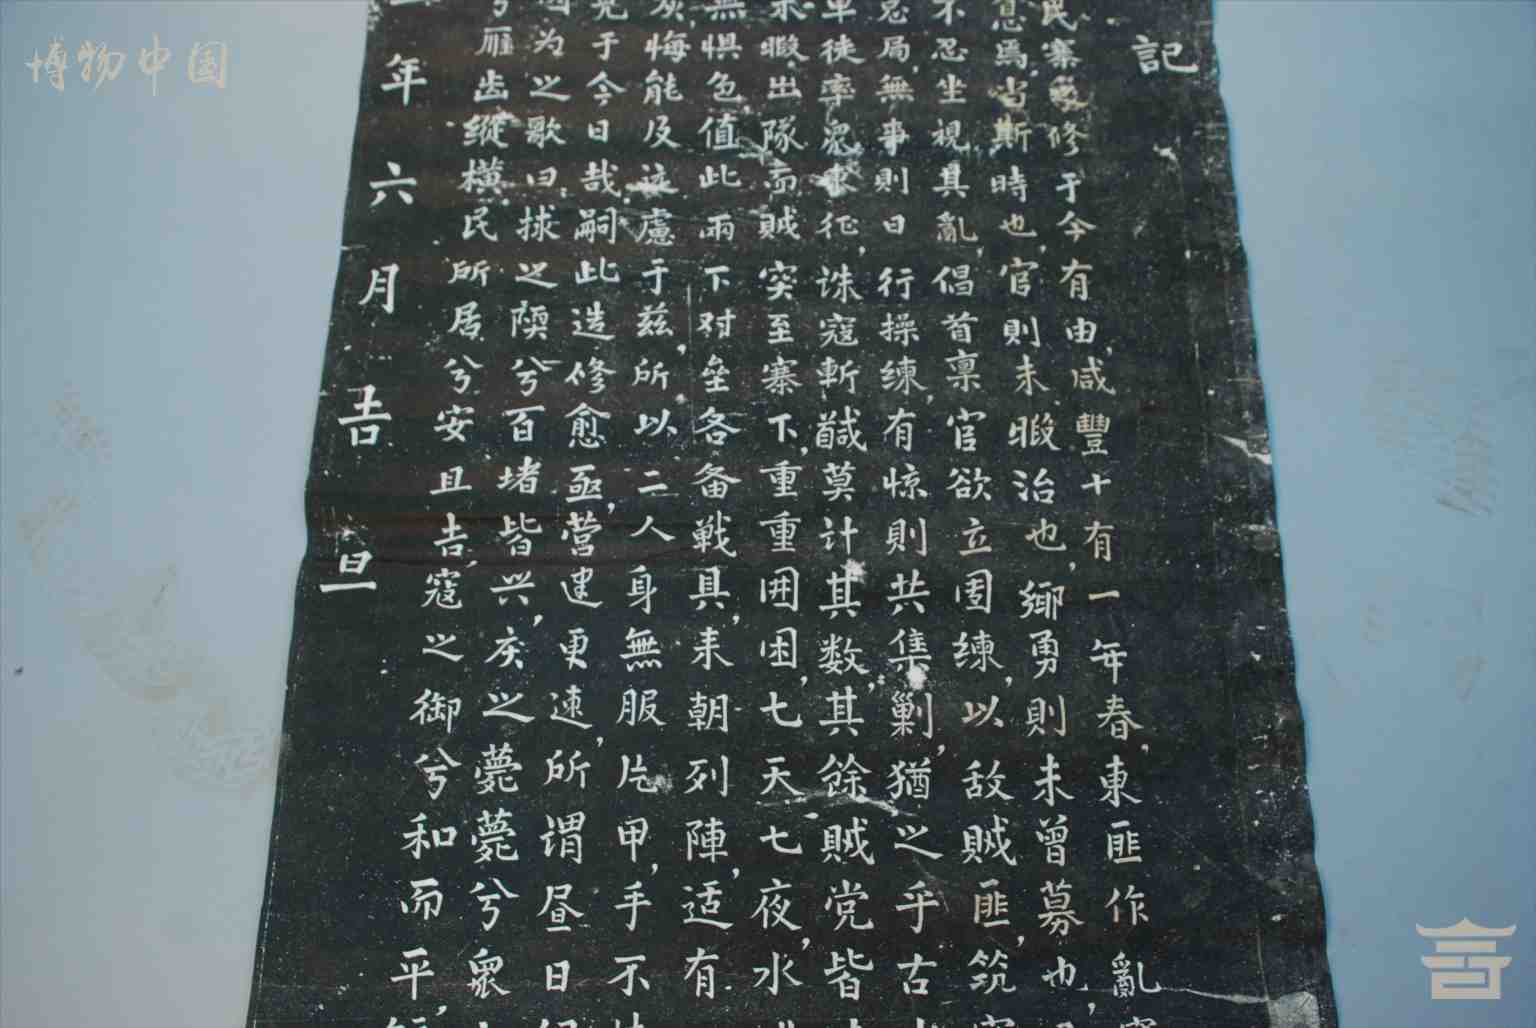 博物中国
記
民寨安修于今有由,咸豐十有一年春,東匪作亂
息焉,当斯時也,官則未暇治也,鄉勇則未曾募也,
不忍坐視其亂,倡首禀官欲立團練,以敌賊匪,筑
忽局,無事則日行操練,有惊則共集剿,猶之乎古
車徒率眾東征,誅寇斬馘莫計其数,其餘賊党皆
未暇,出隊而賊突至寨下,重重围困,七天七夜,水
無惧色,值此兩下对垒各备战具,未朝列陣,适有
悔能及远慮于兹,所以二人身無服片甲,手不
于今日哉,嗣此造修愈亟,营建更速,所谓昼日
为之歌曰,捄之陾兮百堵皆兴,度之薨薨兮眾
兮雁齿縱横民所居兮安且吉,寇之御兮和而平,
年六月吉旦